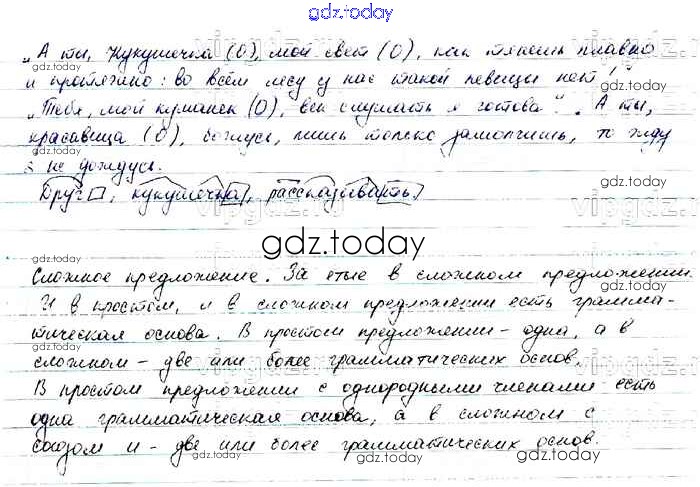 gdz.today
„А ты, Кукушечка (О), мой свет (О), как тянешь плавно
и протяжно: во всём лесу у нас такой певицы нет!"
„Тебя, мой куманек (О), век слушать я готова". „А ты,
красавица (О), божусь, лишь только замолчишь, то жду
я не дождусь.
Друг, кукушечка, рассказывать
gdz.today
Сложное предложение. Запятые в сложном предложении.
И в простом, и в сложном предложении есть грамма-
тическая основа. В простом предложении – одна, а в
сложном – две или более грамматических основ.
В простом предложении с однородными членами есть
одна грамматическая основа, а в сложном с
союзом и – две или более грамматических основ.